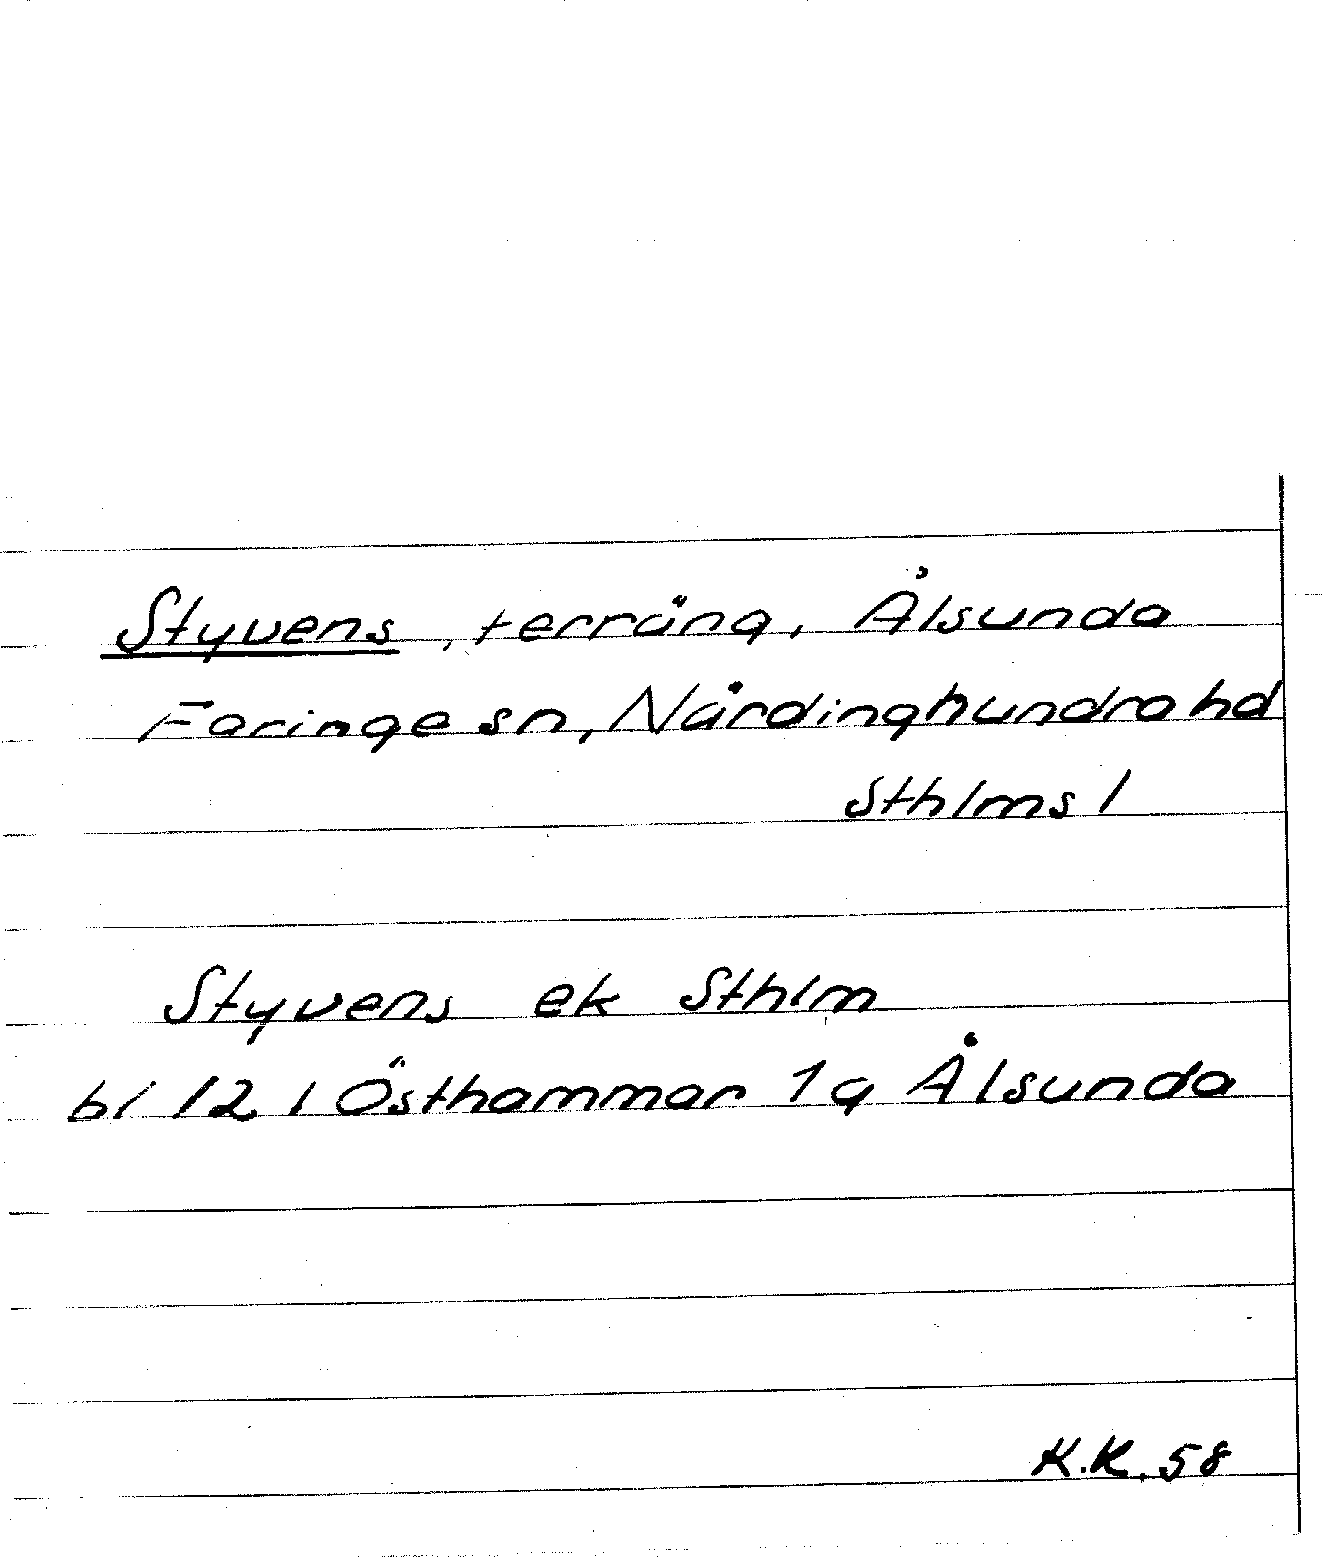 Styvens, terräng, Ålsunda
Faringe sn, Närdinghundra hd
Sthlms l
Styvens ek Sthlm
bl 12 i Östhammar 1 g Ålsunda
K.K. 58